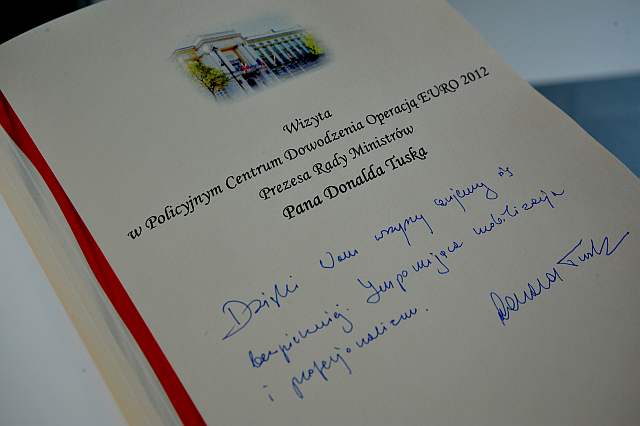 Wizyta
w Policyjnym Centrum Dowodzenia Operacją EURO 2012
Prezesa Rady Ministrów
Pana Donalda Tuska
Dzięki Wam wszyscy czujemy się
bezpieczniej. Imponująca mobilizacja
i profesjonalizm.
Donald Tusk